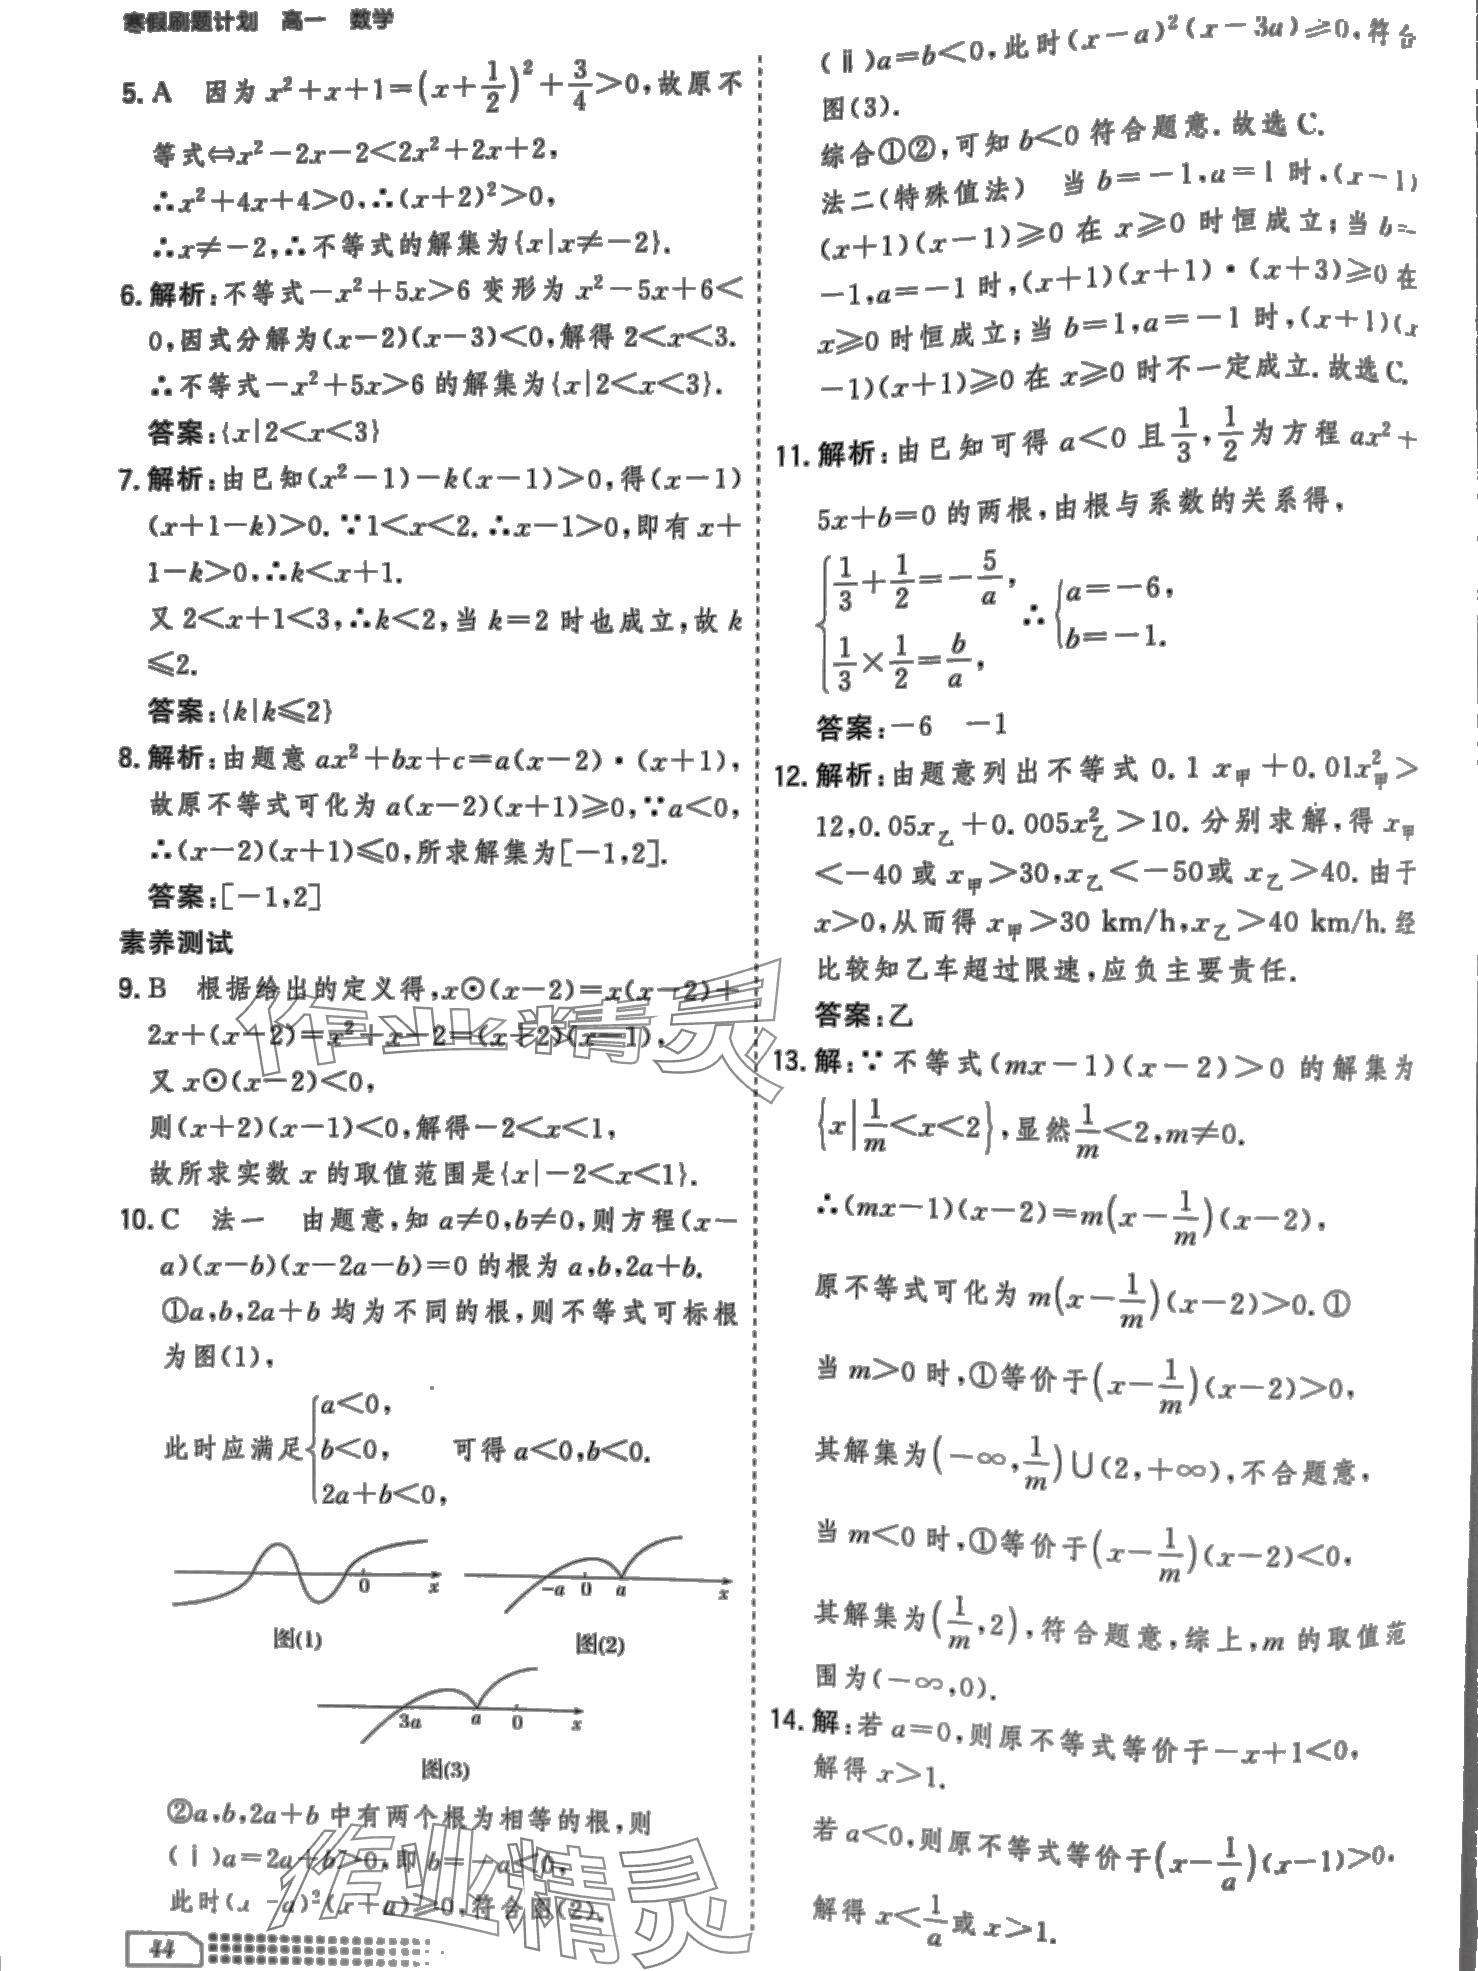 寒假刷题计划 高一 数学
5. A 因为 x²+x+1=(x+1/2)²+3/4>0,故原不
等式⇔x²-2x-2<2x²+2x+2,
∴x²+4x+4>0,∴(x+2)²>0,
∴x≠-2,∴不等式的解集为{x|x≠-2}.
6. 解析:不等式-x²+5x>6 变形为 x²-5x+6<
0,因式分解为(x-2)(x-3)<0,解得 2<x<3.
∴不等式-x²+5x>6 的解集为{x|2<x<3}.
答案:{x|2<x<3}
7. 解析:由已知(x²-1)-k(x-1)>0,得(x-1)
(x+1-k)>0.∵1<x<2.∴x-1>0,即有 x+
1-k>0,∴k<x+1.
又 2<x+1<3,∴k<2,当 k=2 时也成立,故 k
≤2.
答案:{k|k≤2}
8. 解析:由题意 ax²+bx+c=a(x-2)·(x+1),
故原不等式可化为 a(x-2)(x+1)≥0,∵a<0,
∴(x-2)(x+1)≤0,所求解集为[-1,2].
答案:[-1,2]
素养测试
9. B 根据给出的定义得,x⊙(x-2)=x(x-2)+
2x+(x-2)=x²+x-2=(x+2)(x-1),
又 x⊙(x-2)<0,
则(x+2)(x-1)<0,解得-2<x<1,
故所求实数 x 的取值范围是{x|-2<x<1}.
10. C 法一 由题意,知 a≠0,b≠0,则方程(x-
a)(x-b)(x-2a-b)=0 的根为 a,b,2a+b.
①a,b,2a+b 均为不同的根,则不等式可标根
为图(1),
此时应满足{a<0, b<0, 2a+b<0, 可得 a<0,b<0.
0 x
-a 0 a x
图(1) 图(2)
3a a 0 x
图(3)
②a,b,2a+b 中有两个根为相等的根,则
(ⅰ)a=2a+b>0,即 b=-a<0,
此时(x-a)²(x+a)≥0,符合图(2).
44
(ⅱ)a=b<0,此时(x-a)²(x-3a)≥0,符合
图(3).
综合①②,可知 b<0 符合题意.故选 C.
法二(特殊值法) 当 b=-1,a=1 时,(x-1)
(x+1)(x-1)≥0 在 x≥0 时恒成立;当 b=
-1,a=-1 时,(x+1)(x+1)·(x+3)≥0 在
x≥0 时恒成立;当 b=1,a=-1 时,(x+1)(x
-1)(x+1)≥0 在 x≥0 时不一定成立.故选 C.
11. 解析:由已知可得 a<0 且 1/3,1/2 为方程 ax²+
5x+b=0 的两根,由根与系数的关系得,
{1/3+1/2=-5/a, 1/3×1/2=b/a, ∴{a=-6, b=-1.
答案:-6 -1
12. 解析:由题意列出不等式 0.1 x甲+0.01x²甲>
12,0.05x乙+0.005x²乙>10.分别求解,得 x甲
<-40 或 x甲>30,x乙<-50或 x乙>40.由于
x>0,从而得 x甲>30 km/h,x乙>40 km/h.经
比较知乙车超过限速,应负主要责任.
答案:乙
13. 解:∵不等式(mx-1)(x-2)>0 的解集为
{x|1/m<x<2},显然1/m<2,m≠0.
∴(mx-1)(x-2)=m(x-1/m)(x-2),
原不等式可化为 m(x-1/m)(x-2)>0.①
当 m>0 时,①等价于(x-1/m)(x-2)>0,
其解集为(-∞,1/m)∪(2,+∞),不合题意,
当 m<0 时,①等价于(x-1/m)(x-2)<0,
其解集为(1/m,2),符合题意,综上,m 的取值范
围为(-∞,0).
14. 解:若 a=0,则原不等式等价于-x+1<0,
解得 x>1.
若 a<0,则原不等式等价于(x-1/a)(x-1)>0.
解得 x<1/a或 x>1.
作业精灵
作业精灵